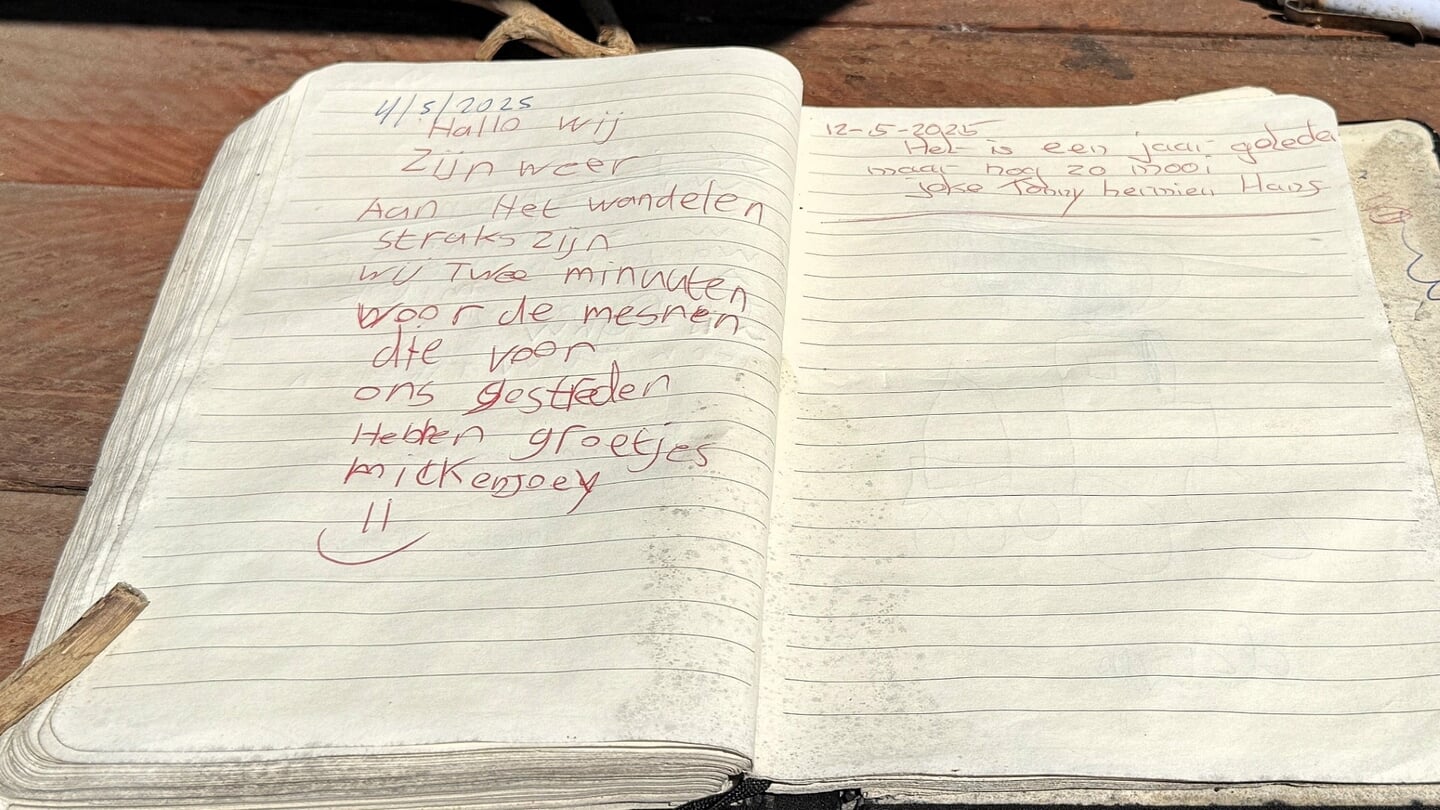 4/5/2025
Hallo wij
Zijn weer
Aan Het wandelen
straks zijn
wij Twee minuuten
voor de mesnen
die voor
ons gestreden
Hebben groetjes
mickenjoey
12-5-2025
Het is een jaar geleden
maar nog zo mooi
Joke Tonny hermien Hans